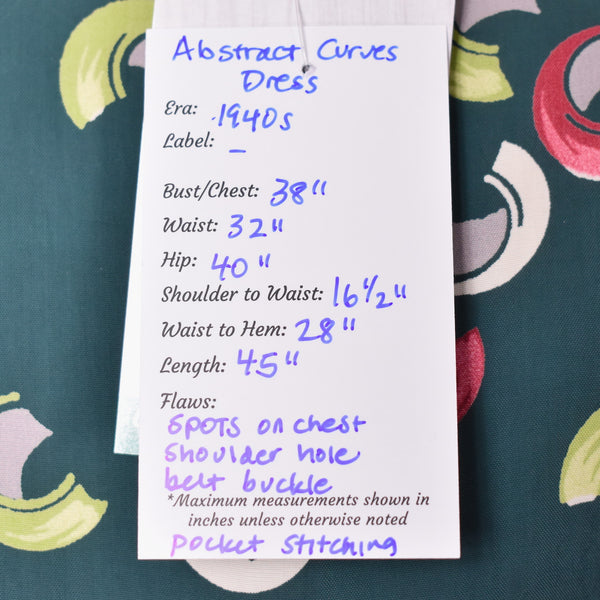 Abstract Curves
Dress
Era: 1940s
Label: –
Bust/Chest: 38"
Waist: 32"
Hip: 40"
Shoulder to Waist: 16 1/2"
Waist to Hem: 28"
Length: 45"
Flaws:
SPOTS on chest
Shoulder hole
belt buckle
*Maximum measurements shown in
inches unless otherwise noted
Pocket Stitching